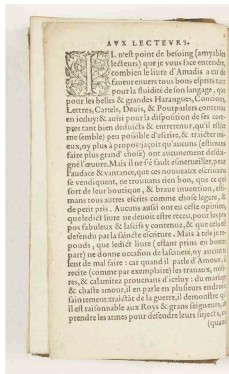 AVX LECTEVRS.
IL n'est point de besoing (amyables
lecteurs) que je vous face entendre,
combien le liure d'Amadis a eu de
faueur enuers tous bons esprits tant
pour la fluidité de son langage, que
pour les belles & grandes Harangues, Concions,
Lettres, Cartels, Deuis, & Pourparlers contenuz
en iceluy: & aussi pour la disposition de ses com-
ptes tant bien deduicts & entretenuz, qu'il est (ce
me semble) peu possible d'escrire, & traicter mi-
eux, ny plus à propos
faire plus grand' chose) ont aucunement desdai-
gné l'œuure. Mais il ne s'é faut esmerueiller, pour
l'audace & vantance, que ces nouueaux escriuains
se vendiquent, ne trouuans rien bon, que ce qui
sort de leur boutique, & braue inuention, esti-
mans tous autres escrits comme chose legere, &
de petit pris. Aucuns aussi ont eu ceste opinion,
que ledict liure ne deuoit estre receu, pour les pro
pos fabuleux & lascifs y contenuz, & que cela est
defendu par la saincte escriture. Mais à tels je res-
ponds, que ledict liure (estant prins en bonne
part) ne donne occasion de lasciueté, ny aucun ta
lent de mal faire: car quand il parle d'Amour, il
recite (comme par exemplaire) les trauaux, mise-
res, & calamitez prouenans d'iceluy: du mariage
& chaste amour, il en parle en plusieurs endroits
sainement: traictāt de la guerre, il demonstre qu'
il est raisonnable aux Roys & grans seigneurs, de
prendre les armes pour defendre leurs subjects, &
(quant